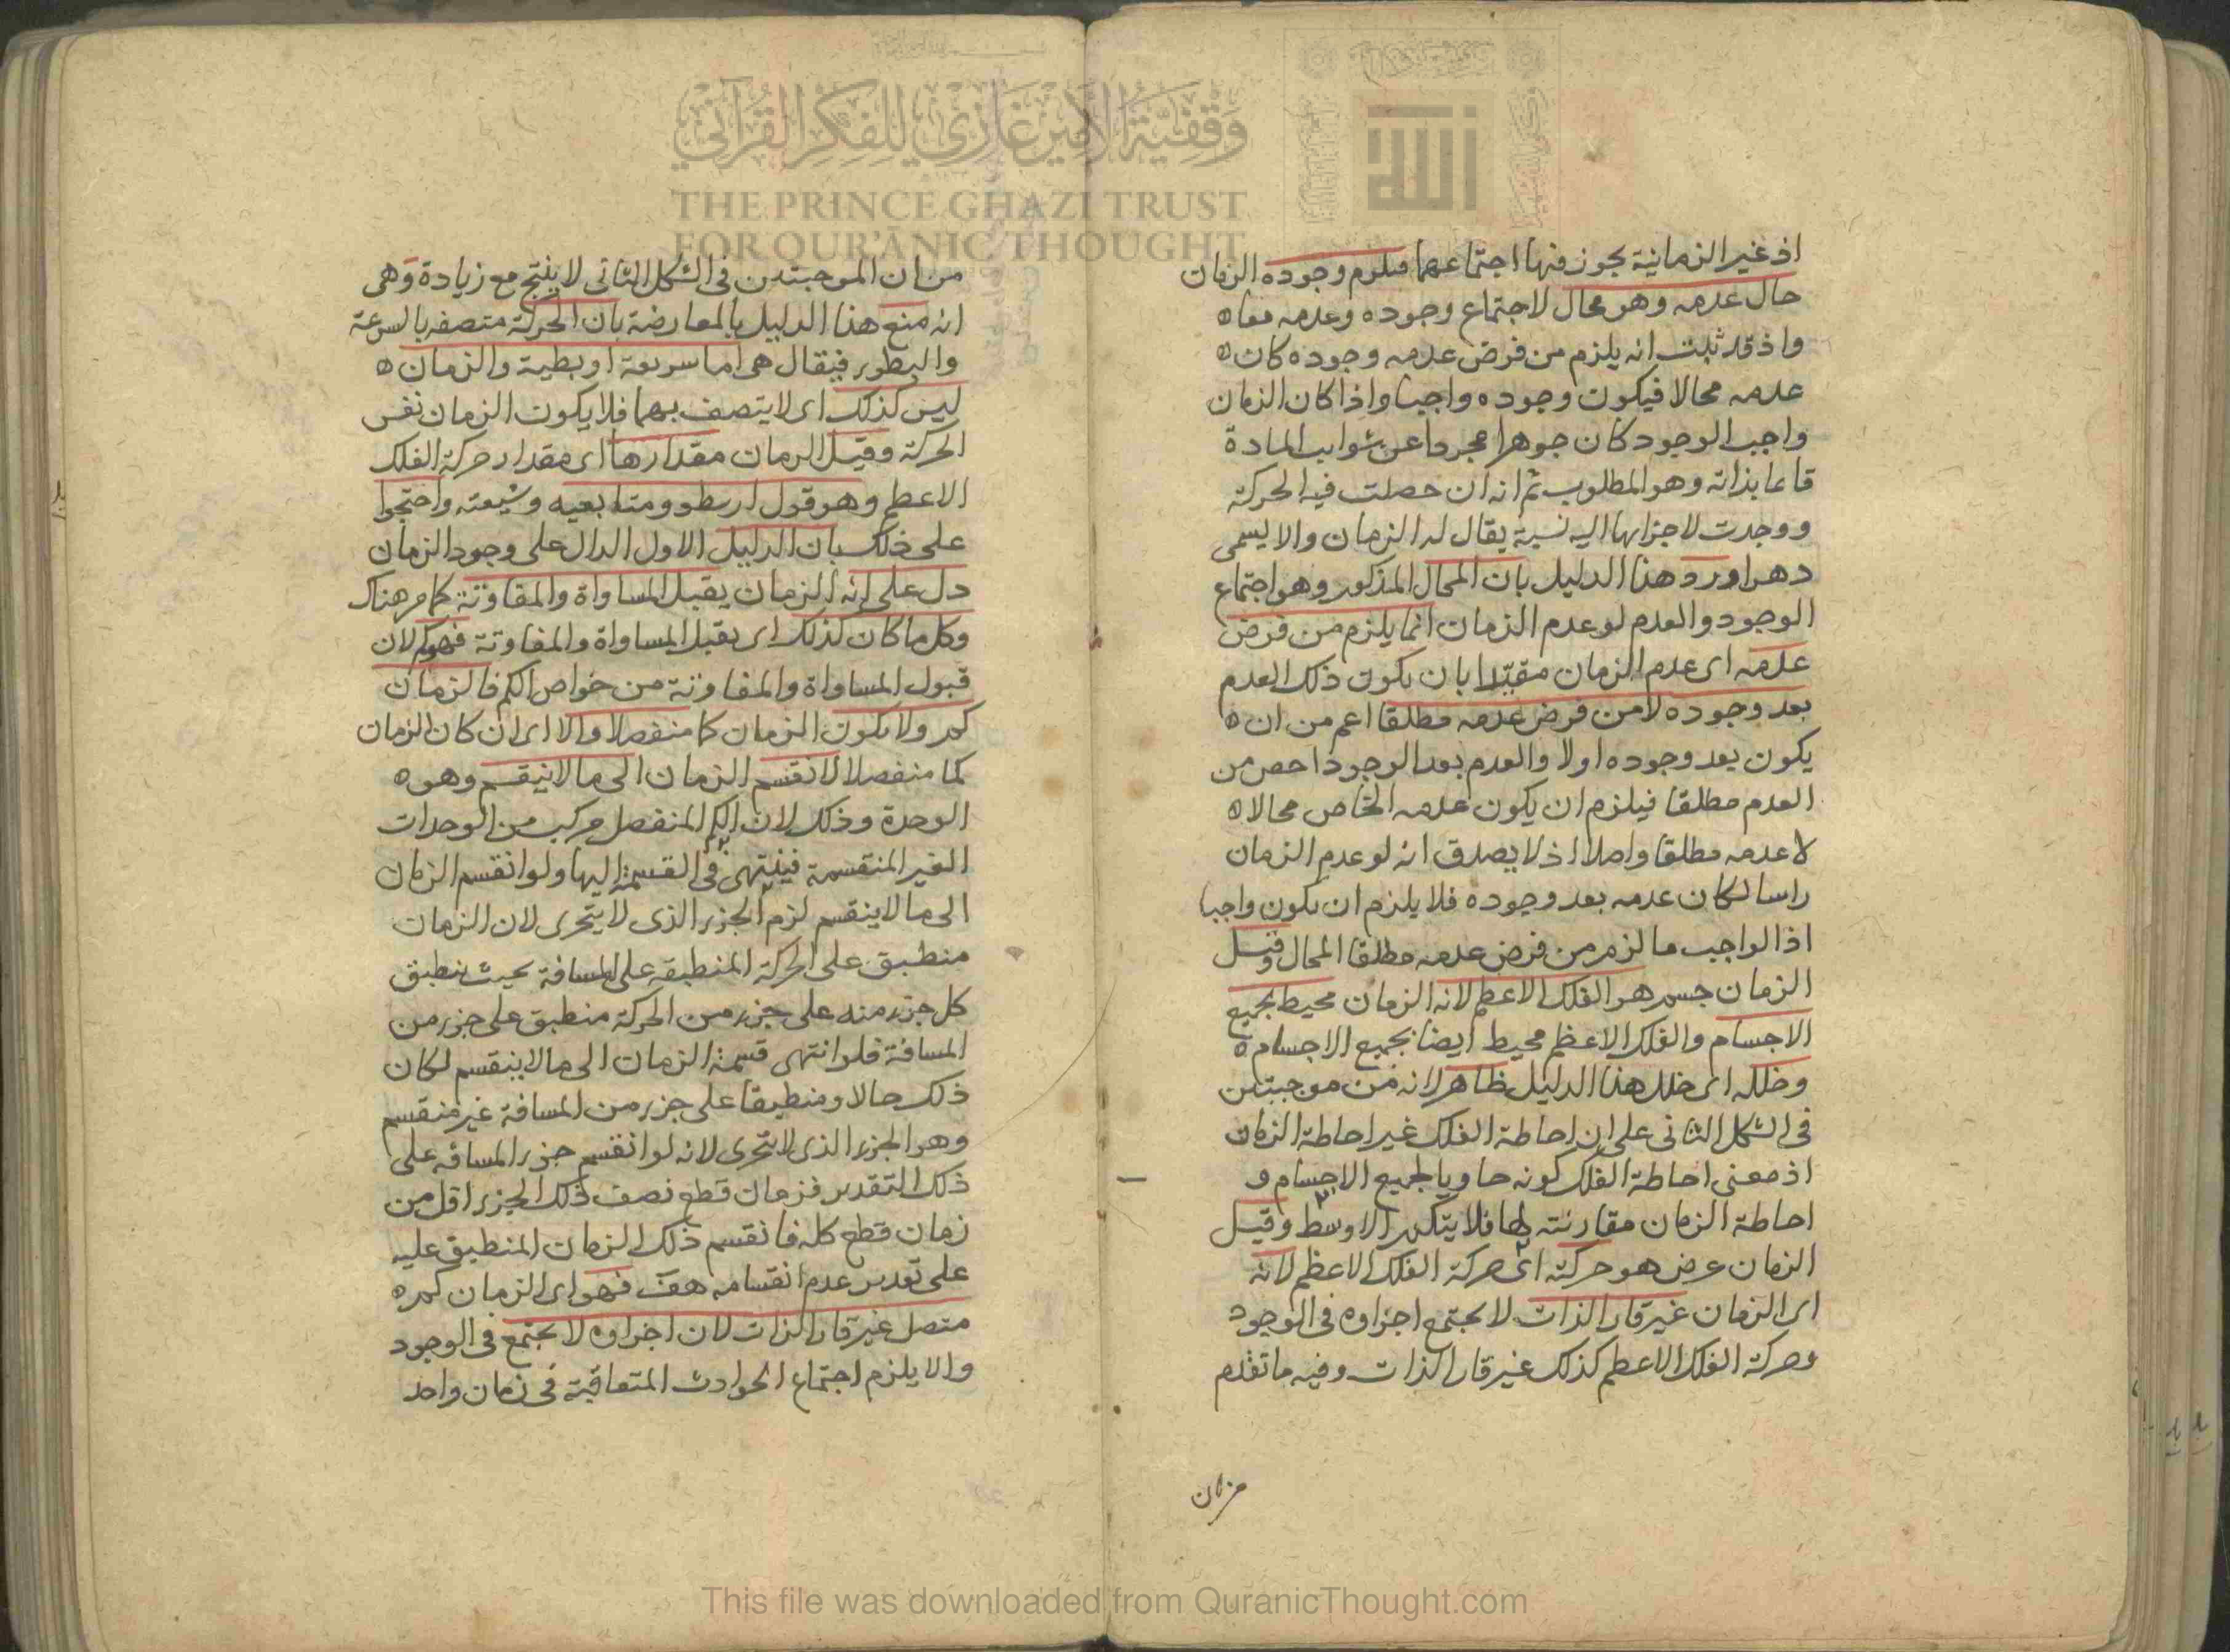 اذ غير الزمانية يجوز فيها اجتماعهما فيلزم وجوده الزمان
حال عدمه وهو محال لاجتماع وجوده وعدمه معا ه
واذ قد ثبت انه يلزم من فرض عدمه وجوده كان ه
عدمه محالا فيكون وجوده واجبا واذا كان الزمان
واجب الوجود كان جوهرا مجردا عن شوايب المادة
قائما بذاته وهو المطلوب ثم انه ان حصلت فيه الحركة
ووجدت لاجزايها اليه نسبة يقال له الزمان والا يسمى
دهرا ورد هذا الدليل بان المحال المذكور وهو اجتماع
الوجود والعدم لو عدم الزمان انما يلزم من فرض
عدمه اى عدم الزمان مقيدا بان يكون ذلك العدم
بعد وجوده لا من فرض عدمه مطلقا اعم من ان ه
يكون بعد وجوده اولا والعدم بعد الوجود اخص من
العدم مطلقا فيلزم ان يكون عدمه الخاص محالا ه
لا عدمه مطلقا واصلا اذ لا يصدق انه لو عدم الزمان
راسا لكان عدمه بعد وجوده فلا يلزم ان يكون واجبا
اذ الواجب ما لزم من فرض عدمه مطلقا المحال وقيل
الزمان جسم هو الفلك الاعظم لانه الزمان محيط بجميع
الاجسام والفلك الاعظم محيط ايضا بجميع الاجسام ه
وخلله اى خلل هذا الدليل ظاهر لانه من موجبتين
فى الشكل الثانى على ان احاطة الفلك غير احاطة الزمان
اذ معنى احاطة الفلك كونه حاويا لجميع الاجسام و
احاطة الزمان مقارنته لها فلا يتكرر الاوسط وقيل
الزمان عرض هو حركته اى حركة الفلك الاعظم لانه
اى الزمان غير قار الذات لا يجتمع اجزاوه فى الوجود
وحركة الفلك الاعظم كذلك غير قار الذات وفيه ما تقدم
من ان
من ان الموجبتين فى الشكل الثانى لا ينتج مع زيادة وهى
انه منع هذا الدليل بالمعارضة بان الحركة متصفه بالسرعة
والبطور فيقال هى اما سريعة او بطية والزمان ه
ليس كذلك اى لا يتصف بهما فلا يكون الزمان نفس
الحركة وقيل الزمان مقدارها اى مقدار حركة الفلك
الاعظم وهو قول ارسطو ومتابعيه وشيعته واحتجوا
على ذلك بان الدليل الاول الدال على وجود الزمان
دل على انه الزمان يقبل المساواة والمفاوتة كما مر هناك
وكل ما كان كذلك اى يقبل المساواة والمفاوتة فهو كم لان
قبول المساواة والمفاوتة من خواص الكم فالزمان
كم ولا يكون الزمان كما منفصلا والا اى ان كان الزمان
كما منفصلا لانقسم الزمان الى ما لا ينقسم وهو ه
الوحدة وذلك لان الكم المنفصل مركب من الوحدات
الغير المنقسمة فينتهى فى القسمة اليها ولو انقسم الزمان
الى ما لا ينقسم لزم الجزء الذى لا يتجزى لان الزمان
منطبق على الحركة المنطبقه على المسافة بحيث ينطبق
كل جزء منه على جزء من الحركة منطبق على جزء من
المسافة فلو انتهى قسمة الزمان الى ما لا ينقسم لكان
ذلك حالا ومنطبقا على جزء من المسافة غير منقسم
وهو الجزء الذى لا يتجزى لانه لو انقسم جزء المسافه على
ذلك التقدير فزمان قطع نصف ذلك الجزء اقل من
زمان قطع كله فانقسم ذلك الزمان المنطبق عليه
على تقدير عدم انقسامه هف فهو اى الزمان كم ه
متصل غير قار الذات لان اجزاوه لا يجتمع فى الوجود
والا يلزم اجتماع الحوادث المتعاقبة فى زمان واحد
وقفية الأمير غازي للفكر القرآني
THE PRINCE GHAZI TRUST
FOR QUR'ĀNIC THOUGHT
This file was downloaded from QuranicThought.com